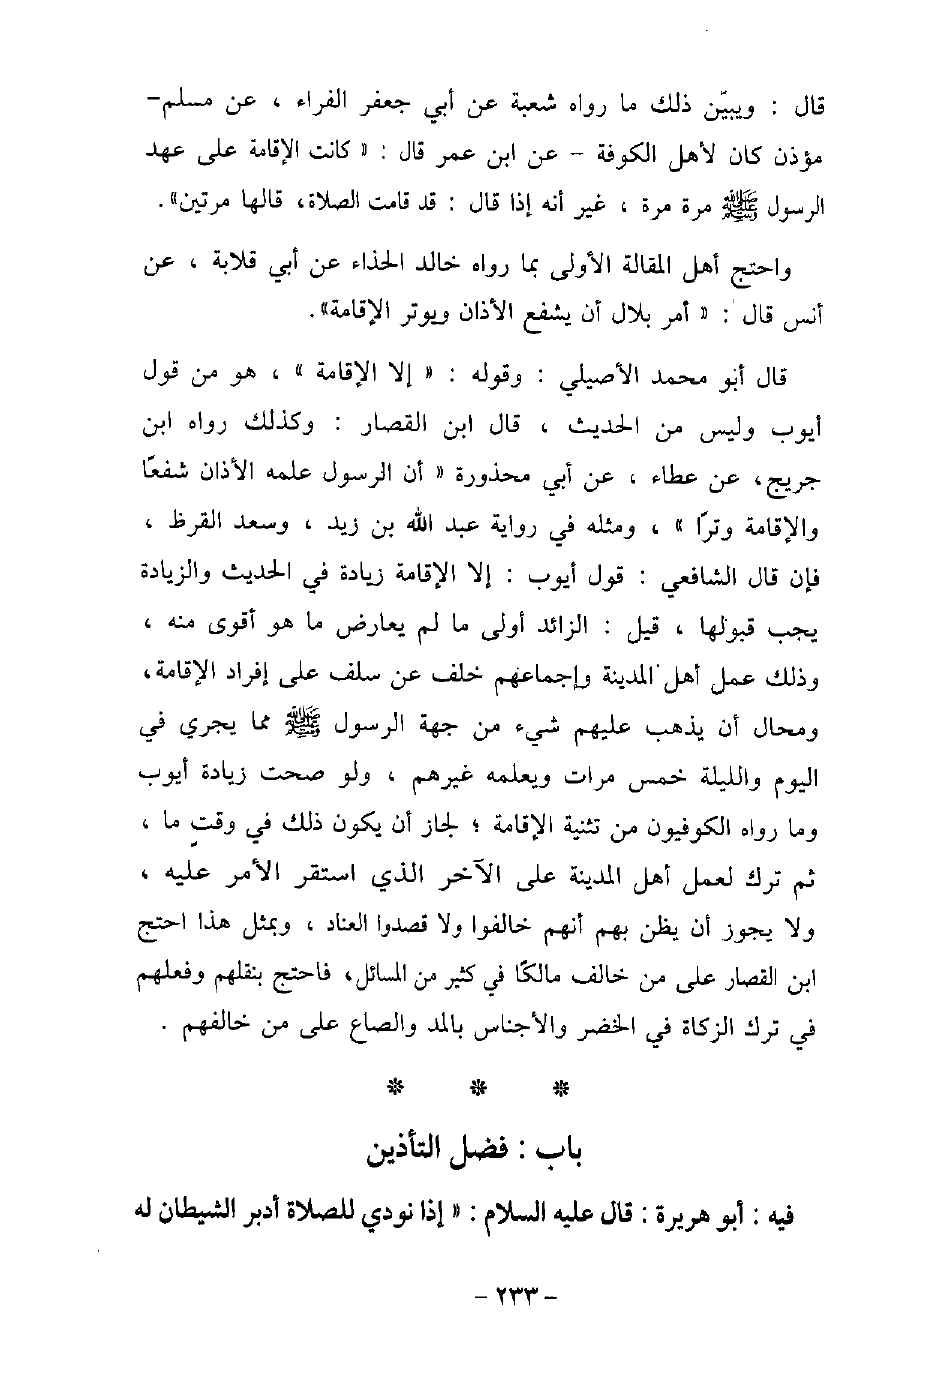 قال : ويبيّن ذلك ما رواه شعبة عن أبي جعفر الفراء ، عن مسلم–
مؤذن كان لأهل الكوفة – عن ابن عمر قال : « كانت الإقامة على عهد
الرسول ﷺ مرة مرة ، غير أنه إذا قال : قد قامت الصلاة، قالها مرتين».
واحتج أهل المقالة الأولى بما رواه خالد الحذاء عن أبي قلابة ، عن
أنس قال : « أمر بلال أن يشفع الأذان ويوتر الإقامة».
قال أبو محمد الأصيلي : وقوله : « إلا الإقامة » ، هو من قول
أيوب وليس من الحديث ، قال ابن القصار : وكذلك رواه ابن
جريج، عن عطاء ، عن أبي محذورة « أن الرسول علمه الأذان شفعًا
والإقامة وترًا » ، ومثله في رواية عبد الله بن زيد ، وسعد القرظ ،
فإن قال الشافعي : قول أيوب : إلا الإقامة زيادة في الحديث والزيادة
يجب قبولها ، قيل : الزائد أولى ما لم يعارض ما هو أقوى منه ،
وذلك عمل أهل المدينة وإجماعهم خلف عن سلف على إفراد الإقامة،
ومحال أن يذهب عليهم شيء من جهة الرسول ﷺ مما يجري في
اليوم والليلة خمس مرات ويعلمه غيرهم ، ولو صحت زيادة أيوب
وما رواه الكوفيون من تثنية الإقامة ؛ لجاز أن يكون ذلك في وقتٍ ما ،
ثم ترك لعمل أهل المدينة على الآخر الذي استقر الأمر عليه ،
ولا يجوز أن يظن بهم أنهم خالفوا ولا قصدوا العناد ، وبمثل هذا احتج
ابن القصار على من خالف مالكًا في كثير من المسائل، فاحتج بنقلهم وفعلهم
في ترك الزكاة في الخضر والأجناس بالمد والصاع على من خالفهم .
* * *
باب : فضل التأذين
فيه : أبو هريرة : قال عليه السلام : « إذا نودي للصلاة أدبر الشيطان له
– ٢٣٣ –